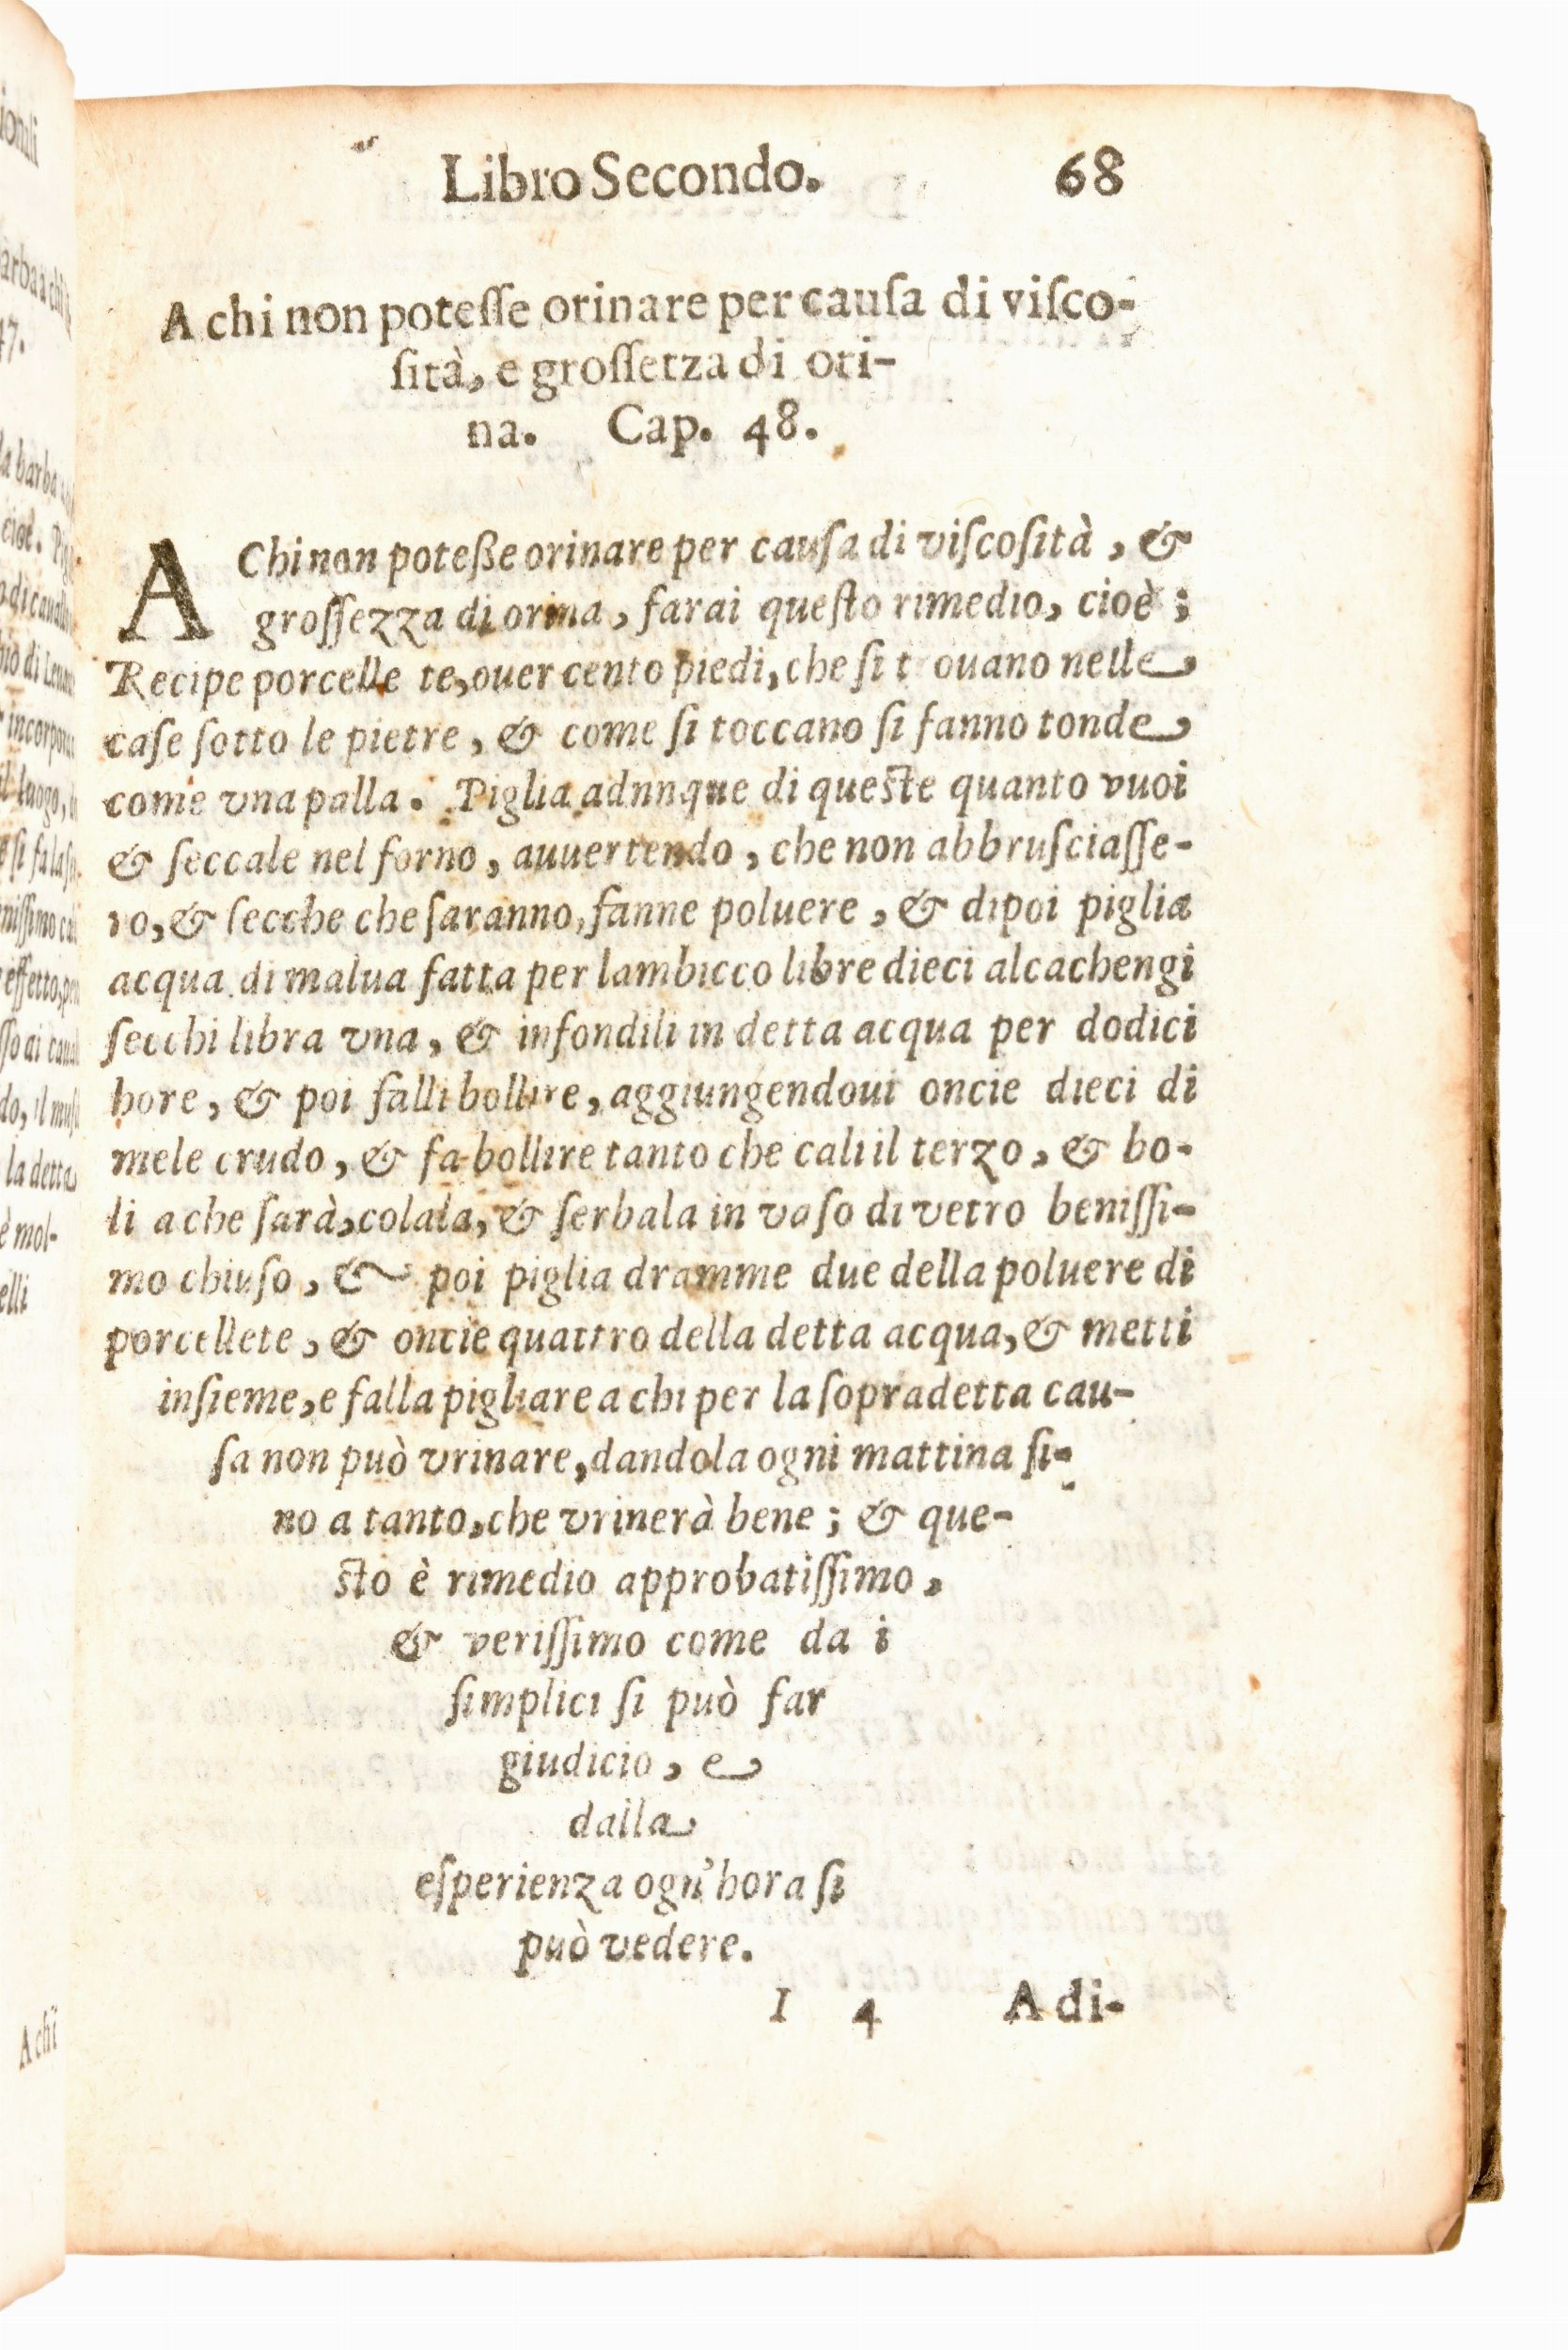 Libro Secondo. 68
A chi non poteſſe orinare per cauſa di viſco-
ſità, e groſſetza di ori-
na. Cap. 48.
A Chi non poteße orinare per cauſa di viſcoſità, &
groſſezza di orina, farai queſto rimedio, cioè;
Recipe porcelle te, ouer cento piedi, che ſi t ouano nelle
caſe ſotto le pietre, & come ſi toccano ſi fanno tonde
come vna palla. Piglia adnnque di queſte quanto vuoi
& ſeccale nel forno, auuertendo, che non abbruſciaſſe-
ro, & ſecche che ſaranno, fanne poluere, & dipoi piglia
acqua di malua fatta per lambicco libre dieci alcachengi
ſecchi libra vna, & infondili in detta acqua per dodici
hore, & poi falli bollire, aggiungendoui oncie dieci di
mele crudo, & fa bollire tanto che cali il terzo, & bo-
li a che ſarà, colala, & ſerbala in vaſo di vetro beniſſi-
mo chiuſo, & poi piglia dramme due della poluere di
porcellete, & oncie quattro della detta acqua, & metti
inſieme, e falla pigliare a chi per la ſopradetta cau-
ſa non può vrinare, dandola ogni mattina ſi-
no a tanto, che vrinerà bene; & que-
ſto è rimedio approbatiſſimo,
& veriſſimo come da i
ſimplici ſi può far
giudicio, e
dalla
eſperienza ogn'hora ſi
può vedere.
I 4 A di-
A chi